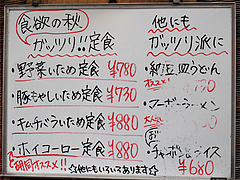 食欲の秋
ガッツリ!!定食
・野菜いため定食 ¥780
・豚もやしいため定食 ¥730
・キムチバラいため定食 ¥880
・ホイコーロー定食 ¥880
オススメ!!
☆他にもいろいろあります☆
他にも
ガッツリ派に
・納豆皿うどん
・マーボーラーメン
・チャーハン
ライス
¥680